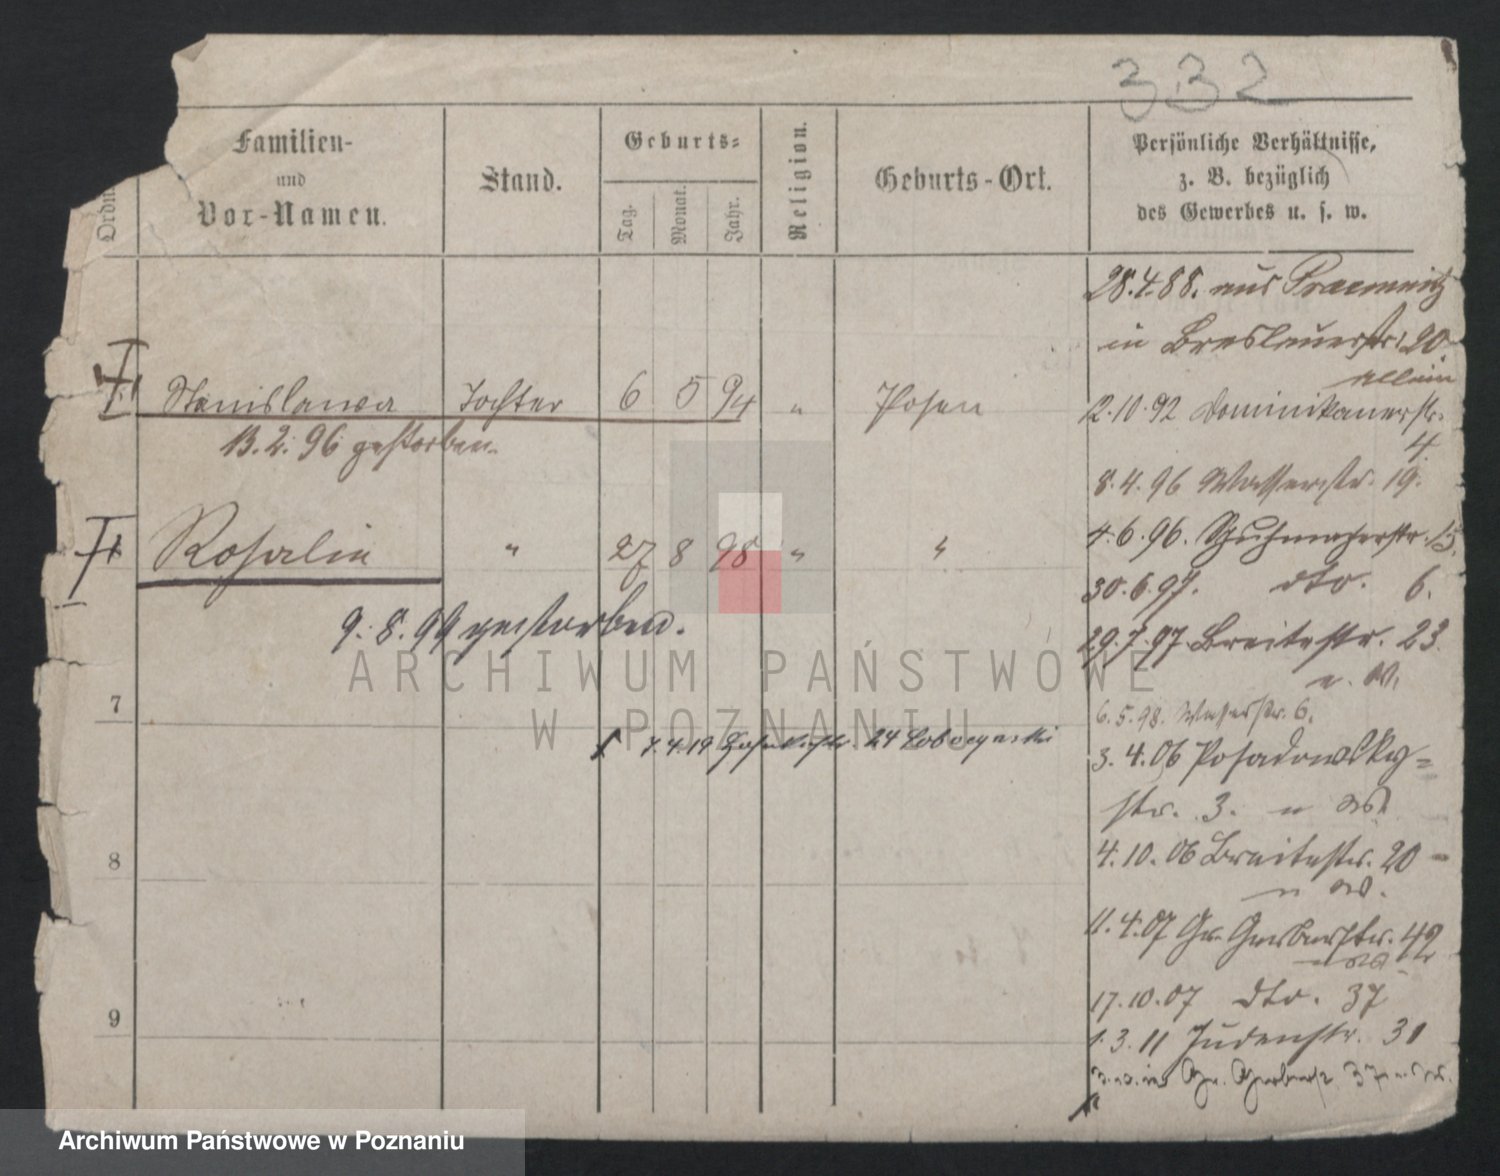 332
Ordnu
Familien-
und
Vor-Namen.
Stand.
Geburts-
Tag.
Monat.
Jahr.
Religion.
Geburts-Ort.
Persönliche Verhältnisse,
z. B. bezüglich
des Gewerbes u. s. w.
28.4.88. aus
in Breslauerstr. 20
allein
Stanislawa Tochter 6 5 94 " Posen
13.2.96 gestorben.
12.10.92 Dominikanerstr.
4.
8.4.96 Wasserstr. 19.
Rosalie " 27 8 98 " "
4.6.96. Schuhmacherstr. 15.
30.6.97. dto. 6.
9.8.99 gestorben.
29.7.97 Breitestr. 23.
7
6.5.98. Wasserstr. 6.
7.4.19 24
3.4.06 Posadowsky-
str. 3.
8
4.10.06 Breitestr. 20
11.4.07 Gr. Gerberstr. 42
17.10.07 dto. 37
9
1.3.11 Judenstr. 31
Gr. Gerberstr. 37
ARCHIWUM PAŃSTWOWE
W POZNANIU
Archiwum Państwowe w Poznaniu